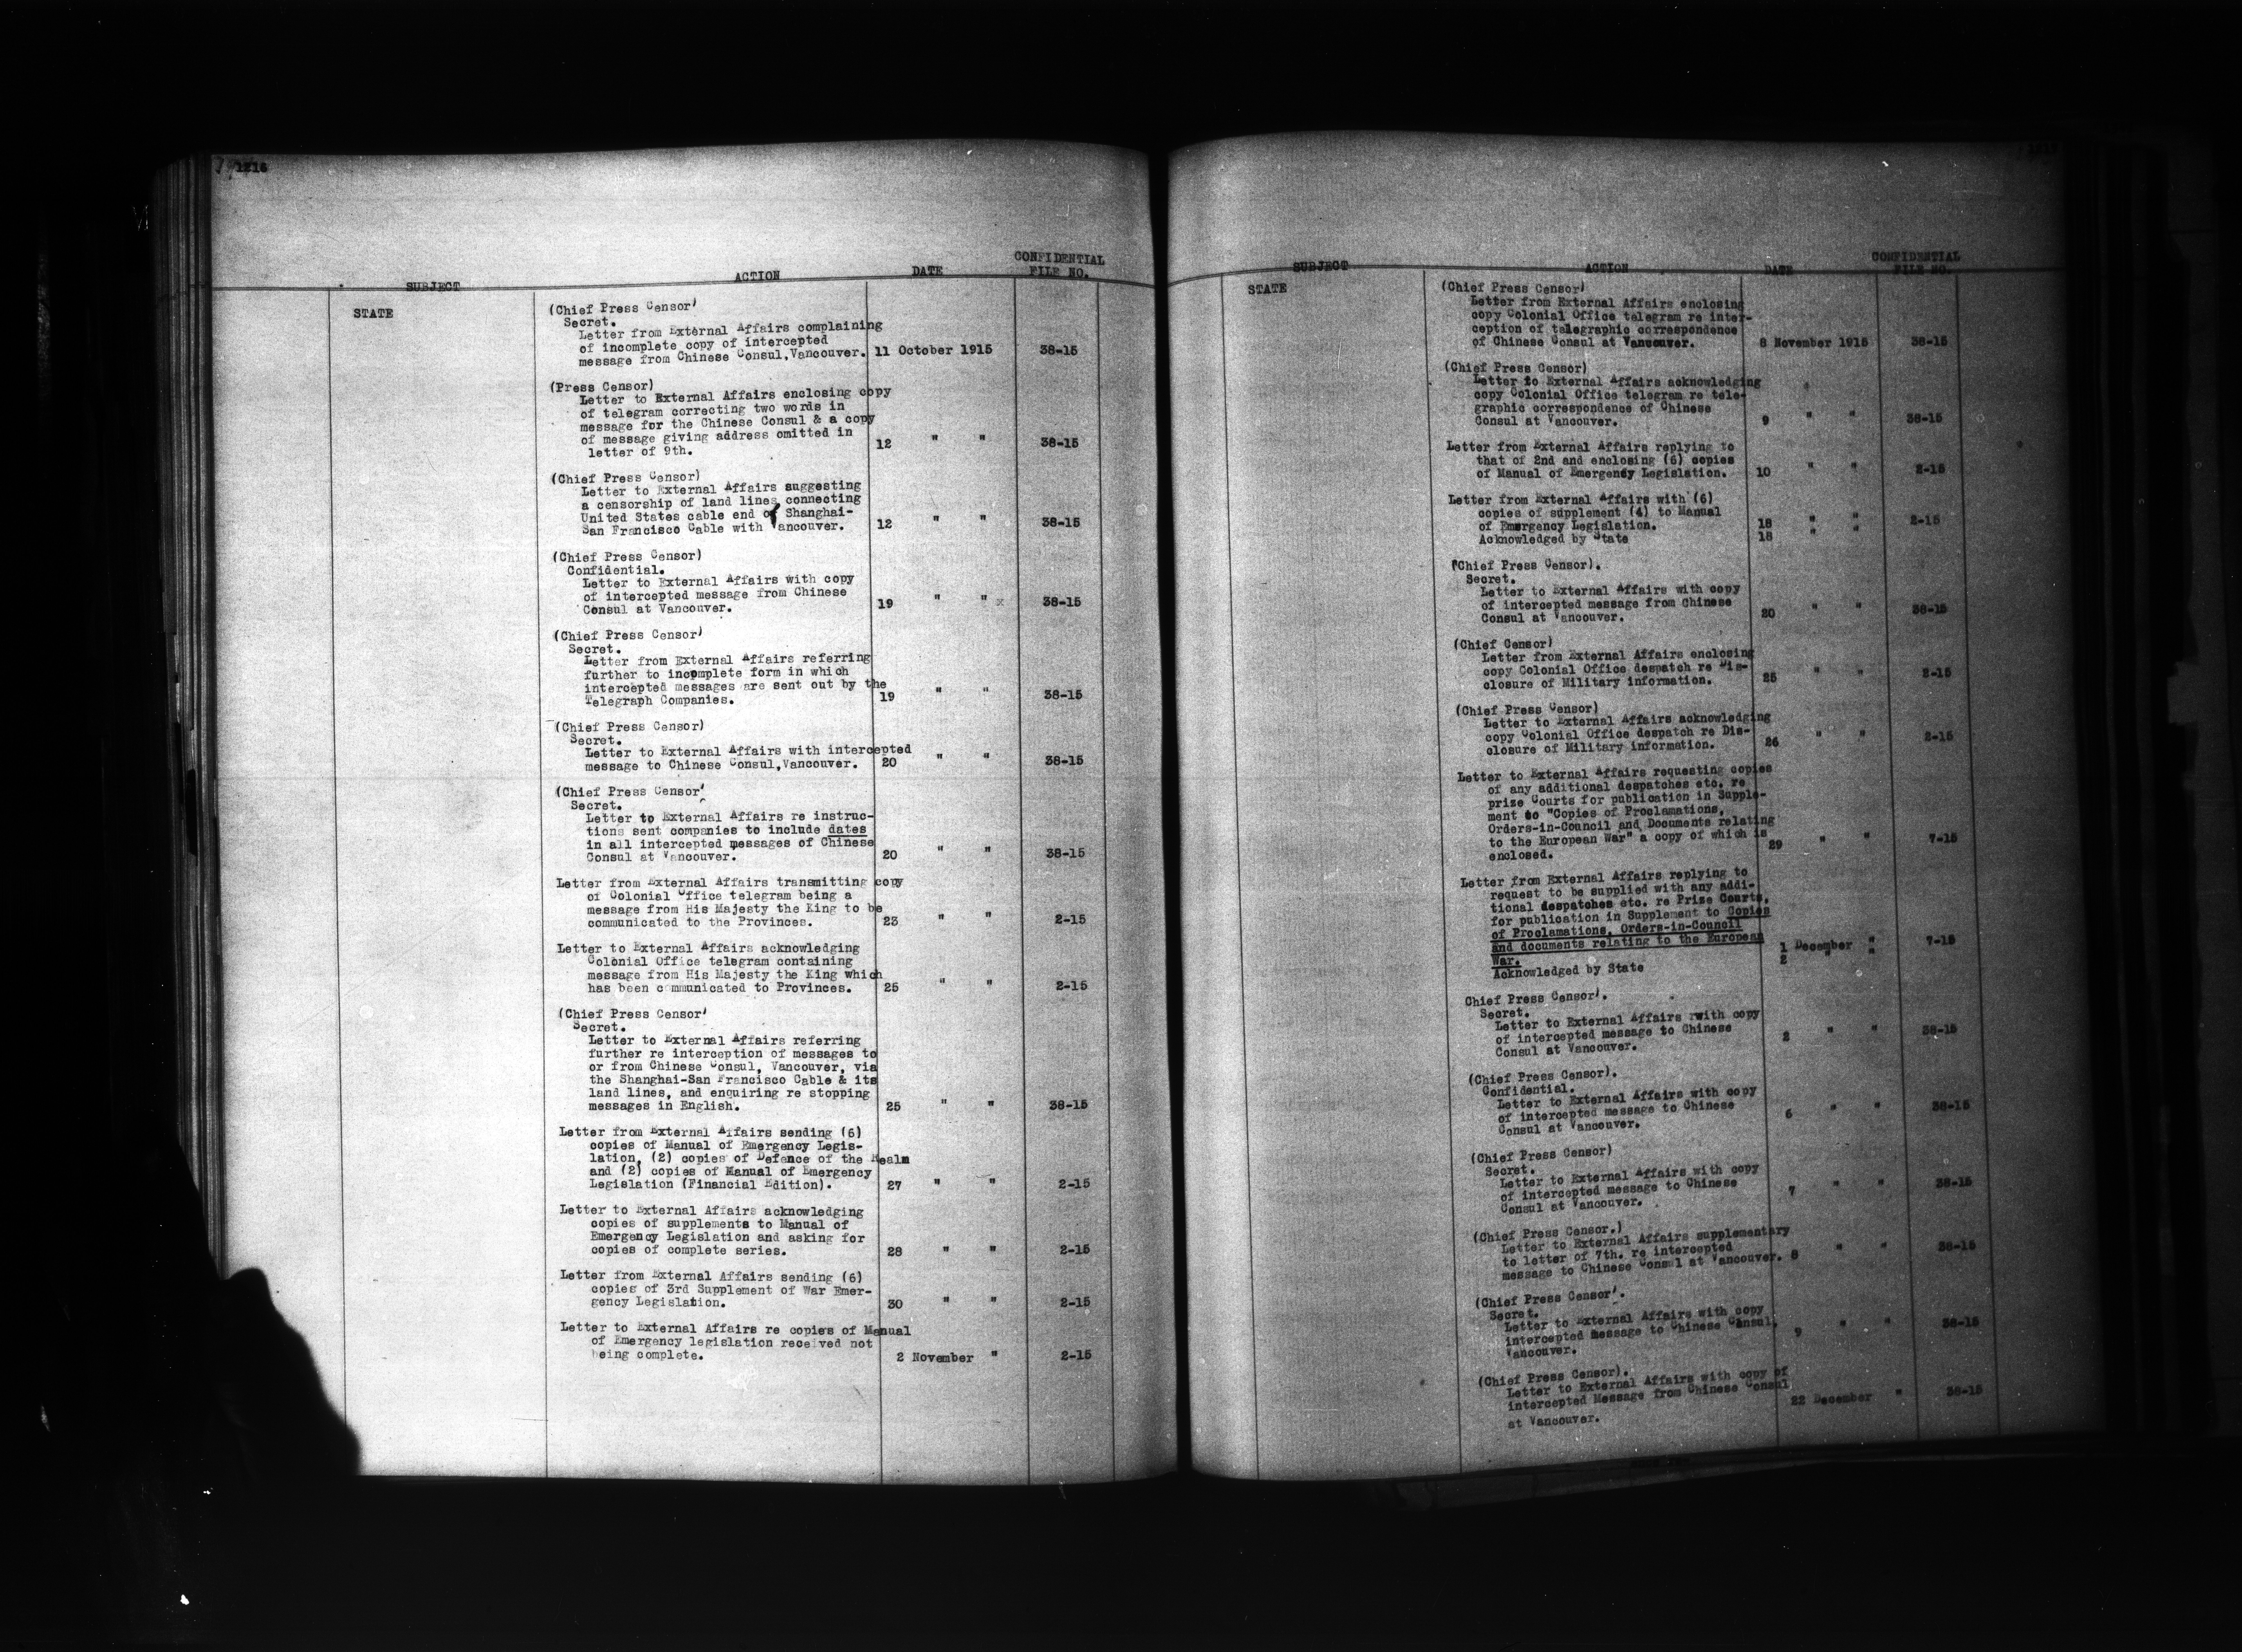 1216
CONFIDENTIAL
SUBJECT ACTION DATE FILE NO.
STATE
(Chief Press Censor)
Secret.
Letter from External Affairs complaining
of incomplete copy of intercepted
message from Chinese Consul,Vancouver. 11 October 1915 38-15
(Press Censor)
Letter to External Affairs enclosing copy
of telegram correcting two words in
message for the Chinese Consul & a copy
of message giving address omitted in
letter of 9th. 12 " " 38-15
(Chief Press Censor)
Letter to External Affairs suggesting
a censorship of land lines connecting
United States cable end of Shanghai-
San Francisco Cable with Vancouver. 12 " " 38-15
(Chief Press Censor)
Confidential.
Letter to External Affairs with copy
of intercepted message from Chinese
Consul at Vancouver. 19 " " x 38-15
(Chief Press Censor)
Secret.
Letter from External Affairs referring
further to incomplete form in which
intercepted messages are sent out by the
Telegraph Companies. 19 " " 38-15
(Chief Press Censor)
Secret.
Letter to External Affairs with intercepted
message to Chinese Consul,Vancouver. 20 " " 38-15
(Chief Press Censor)
Secret.
Letter to External Affairs re instruc-
tions sent companies to include dates
in all intercepted messages of Chinese
Consul at Vancouver. 20 " " 38-15
Letter from External Affairs transmitting copy
of Colonial Office telegram being a
message from His Majesty the King to be
communicated to the Provinces. 23 " " 2-15
Letter to External Affairs acknowledging
Colonial Office telegram containing
message from His Majesty the King which
has been communicated to Provinces. 25 " " 2-15
(Chief Press Censor)
Secret.
Letter to External Affairs referring
further re interception of messages to
or from Chinese Consul, Vancouver, via
the Shanghai-San Francisco Cable & its
land lines, and enquiring re stopping
messages in English. 25 " " 38-15
Letter from External Affairs sending (6)
copies of Manual of Emergency Legis-
lation, (2) copies of Defence of the Realm
and (2) copies of Manual of Emergency
Legislation (Financial Edition). 27 " " 2-15
Letter to External Affairs acknowledging
copies of supplements to Manual of
Emergency Legislation and asking for
copies of complete series. 28 " " 2-15
Letter from External Affairs sending (6)
copies of 3rd Supplement of War Emer-
gency Legislation. 30 " " 2-15
Letter to External Affairs re copies of Manual
of Emergency legislation received not
being complete. 2 November " 2-15
CONFIDENTIAL
SUBJECT ACTION DATE FILE NO.
STATE
(Chief Press Censor)
Letter from External Affairs enclosing
copy Colonial Office telegram re inter-
ception of telegraphic correspondence
of Chinese Consul at Vancouver. 8 November 1915 38-15
(Chief Press Censor)
Letter to External Affairs acknowledging
copy Colonial Office telegram re tele-
graphic correspondence of Chinese
Consul at Vancouver. 9 " " 38-15
Letter from External Affairs replying to
that of 2nd and enclosing (6) copies
of Manual of Emergency Legislation. 10 " " 2-15
Letter from External Affairs with (6)
copies of supplement (4) to Manual
of Emergency Legislation. 18 " " 2-15
Acknowledged by State 18 " "
(Chief Press Censor).
Secret.
Letter to External Affairs with copy
of intercepted message from Chinese
Consul at Vancouver. 20 " " 38-15
(Chief Censor)
Letter from External Affairs enclosing
copy Colonial Office despatch re Dis-
closure of Military information. 25 " " 2-15
(Chief Press Censor)
Letter to External Affairs acknowledging
copy Colonial Office despatch re Dis-
closure of Military information. 26 " " 2-15
Letter to External Affairs requesting copies
of any additional despatches etc. re
prize Courts for publication in Supple-
ment to "Copies of Proclamations,
Orders-in-Council and Documents relating
to the European War" a copy of which is
enclosed. 29 " " 7-15
Letter from External Affairs replying to
request to be supplied with any addi-
tional despatches etc. re Prize Courts,
for publication in Supplement to Copies
of Proclamations, Orders-in-Council
and documents relating to the European
War. 1 December " 7-15
Acknowledged by State 2 " "
Chief Press Censor).
Secret.
Letter to External Affairs with copy
of intercepted message to Chinese
Consul at Vancouver. 2 " " 38-15
(Chief Press Censor).
Confidential.
Letter to External Affairs with copy
of intercepted message to Chinese
Consul at Vancouver. 6 " " 38-15
(Chief Press Censor)
Secret.
Letter to External Affairs with copy
of intercepted message to Chinese
Consul at Vancouver. 7 " " 38-15
(Chief Press Censor.)
Letter to External Affairs supplementary
to letter of 7th. re intercepted
message to Chinese Consul at Vancouver. 8 " " 38-15
(Chief Press Censor).
Secret.
Letter to External Affairs with copy
intercepted message to Chinese Consul,
Vancouver. 9 " " 38-15
(Chief Press Censor).
Letter to External Affairs with copy of
intercepted Message from Chinese Consul
at Vancouver. 22 December " 38-15